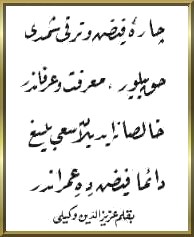 چارهٔ فیض و ترقی شمدی
معرفت و عرفاندر
خالصانه ایدیلان سعی بلیغ
دائما فیض دهِ عمراندر
بقلم عزیزالدین وکیلی